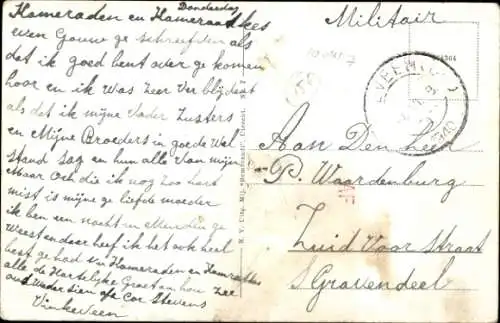 Donderdag
Kameraden en Kameraadkes
even Gouw ge schreefden als
dat ik goed bent over ge komen
hoor en ik was zeer verblijdaat
als dat ik mijne vader Zusters
en Mijne Broeders in goede wel
stand zag en hun alle van mijn
Maar och die ik nog zoo hart
mist is mijne ge liefde moeder
ik ben een nacht in Muiden ge
weest en daar heef ik het ook heel
best gehad van Kameraden en Kameraadkes
alle de Hartelijke Groeten hoor zee
oud vader sien of Cor Stevens
Vinkeveen
N. V. Uitg. Mij. "Rembrandt", Utrecht.
Militair
Aan Den Heer
P. Waardenburg
Zuid Voor Straat
S Gravendeel